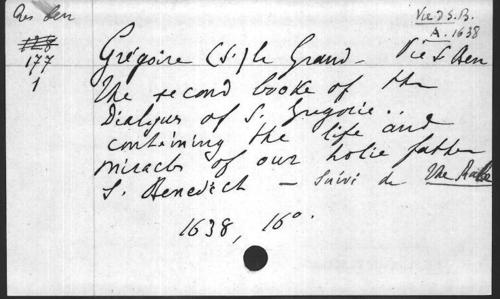 Res Ben
Vie d S.B.
A. 1638
128
177
1
Grégoire (S.) le Grand - Vie S Ben
The second booke of the
Dialogues of S. Gregorie..
containing the life and
miracles of our holie father
S. Benedict - Suivi de The Rule
1638, 16°.